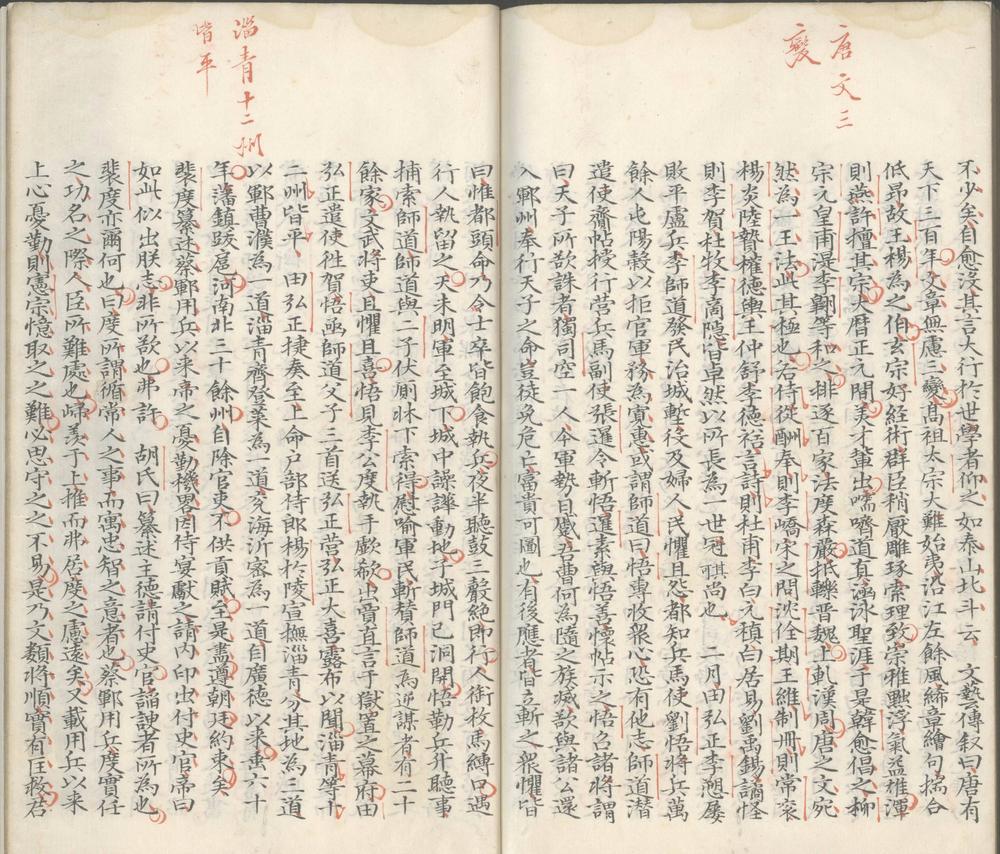 唐文三
變
不少矣自愈沒其言大行於世學者仰之如泰山北斗云　文藝傳叙曰唐有
天下三百年文章無慮三變高祖太宗大難始夷沿江左餘風絺章繪句揣合
低昂故王楊為之伯玄宗好経術群臣稍厭雕琢索理致崇雅黜浮氣益雄渾
則燕許擅其宗大曆正元間美才輩出嚅嚌道真涵泳聖涯于是韓愈倡之柳
宗元皇甫湜李翺等和之排逐百家法度森嚴抵轢晋魏上軋漢周唐之文宛
然為一王法此其極也若侍從酬奉則李嶠宋之問沈佺期王維制冊則常衮
楊炎陸贄權德輿王仲舒李徳裕言詩則杜甫李白元稹白居易劉禹錫譎怪
則李賀杜牧李商隠皆卓然以所長為一世冠其可尚也　二月田弘正李愬屡
敗平盧兵李師道發民治城塹役及婦人民懼且恐都知兵馬使劉悟将兵萬
餘人屯陽榖以拒官軍務為寛惠或謂師道曰悟專收衆心恐有他志師道潜
遣使齎帖授行营兵馬副使張暹令斬悟暹素與悟善懐帖示之悟召諸将謂
曰天子所欲誅者獨司空一人今軍勢日蹙吾曹何為隨之族㓕欲與諸公還
入鄆州奉行天子之命豈徒免危亡富貴可圖也有後應者皆立斬之衆懼皆
淄青十二州
皆平
曰惟都頭命乃令士卒皆飽食執兵夜半聽鼓三聲絶即行人銜枚馬縛口遇
行人執留之天未明軍至城下城中譟譁動地子城門已洞開悟勒兵升聽事
捕索師道師道與二子伏厠牀下索得慰喻軍民斬賛師道為逆謀者有二十
餘家文武将吏且懼且喜悟見李公度執手歔欷出賈直言于獄置之幕府田
弘正遣使徃賀悟函師道父子三首送弘正营弘正大喜露布以聞淄青等十
二州皆平　田弘正捷奏至上命户部侍郎楊於陵宣撫淄青分其地為三道
以鄆曹濮為一道淄青齊登莱為一道兖海沂密為一道自廣徳以来垂六十
年藩鎮跋扈河南北三十餘州自除官吏不供貢賦至是盡遵朝廷約束矣
裴度纂述蔡鄆用兵以来帝之憂勤機畧因侍宴獻之請内印出付史官帝曰
如此似出朕志非所欲也弗許　胡氏曰纂述主德請付史官諂諛者所為也
裴度亦爾何也曰度所謂循常人之事而寓忠智之意者也蔡鄆用兵度實任
之功名之際人臣所難處也歸羙于上推而弗居度之慮遠矣又載用兵以来
上心憂勤則憲宗憶取之之難必思守之之不易是乃文類将順實有匡救君